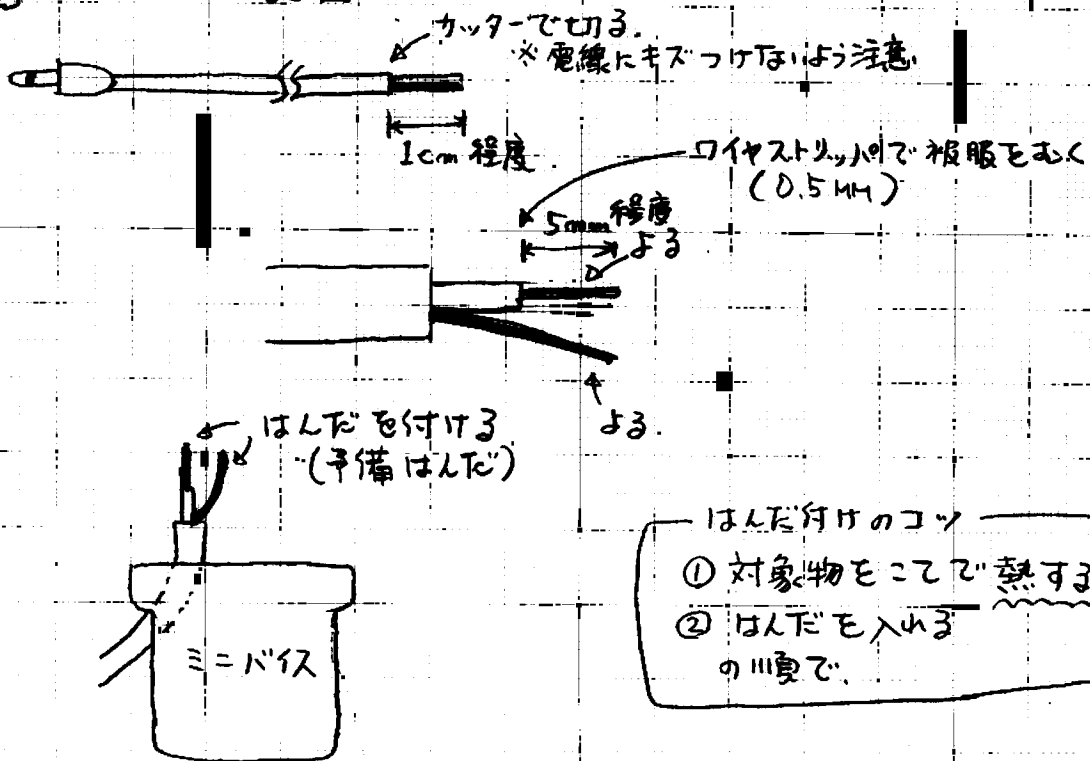 カッターで切る.
※ 電線にキズつけないよう注意
1cm 程度
ワイヤストリッパで被服をむく
(0.5 MM)
5mm程度
よる
よる.
はんだを付ける
(予備はんだ)
ミニバイス
はんだ付けのコツ
① 対象物をこてで熱する
② はんだを入れる
の順で.